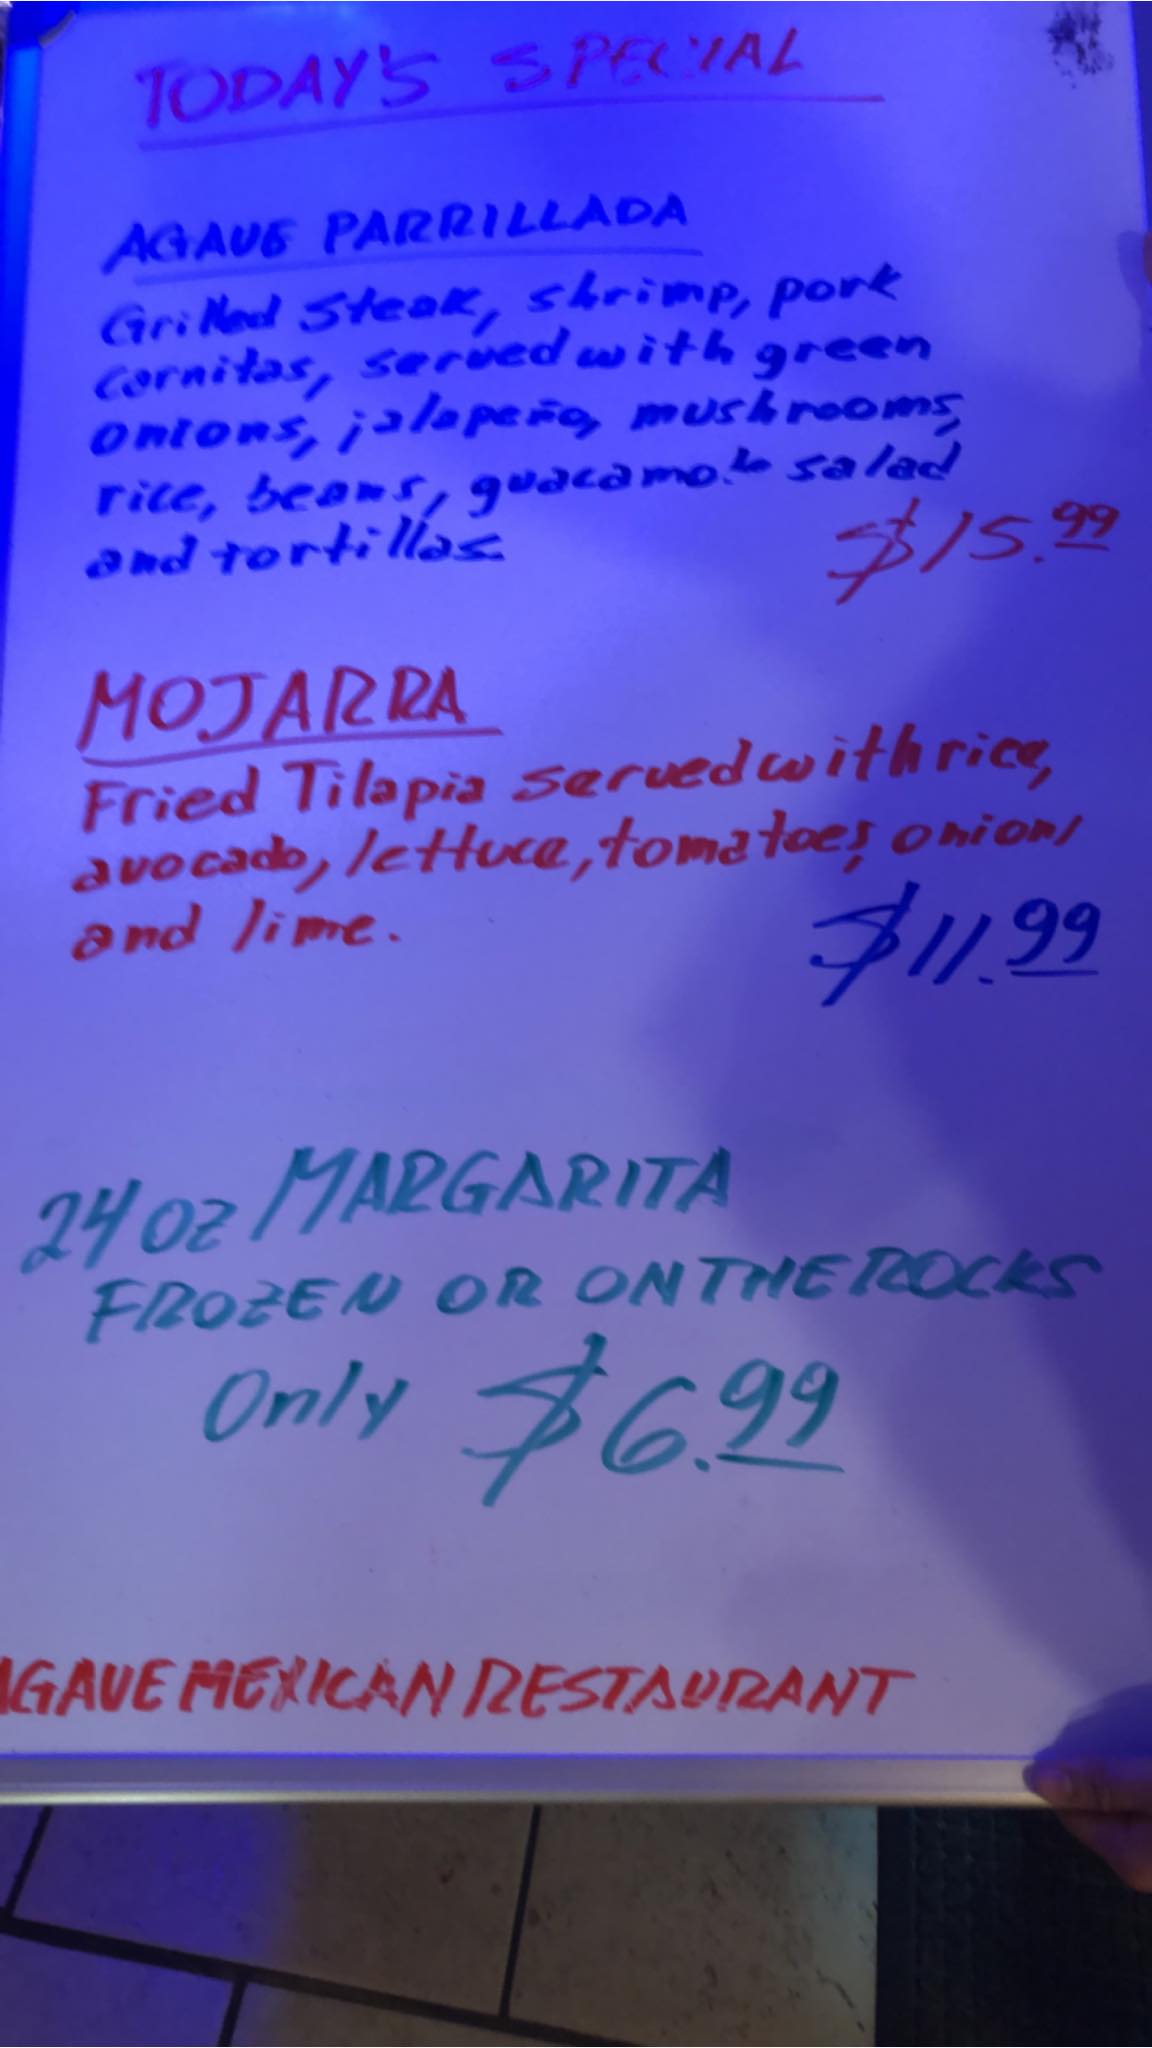 TODAY'S SPECIAL
AGAVE PARRILLADA
Grilled Steak, shrimp, pork
carnitas, served with green
onions, jalapeño, mushrooms,
rice, beans, guacamole salad
and tortillas
$15.99
MOJARRA
Fried Tilapia served with rice,
avocado, lettuce, tomatoes, onions
and lime.
$11.99
24 oz MARGARITA
FROZEN OR ON THE ROCKS
Only $6.99
AGAVE MEXICAN RESTAURANT